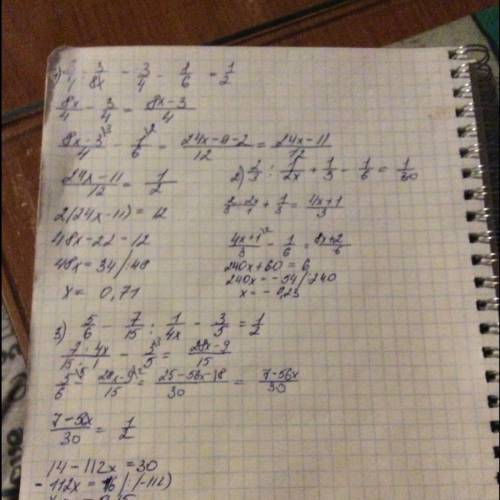 1) 3/4 : 3/8x - 3/4 - 1/6 = 1/2
8x/4 - 3/4 = 8x-3/4
8x-3/4 ^3 - 1/6 ^2 = 24x-9-2/12 = 24x-11/12
24x-11/12 = 1/2
2(24x-11) = 12
48x-22 = 12
48x = 34 /48
x = 0,71
2) 2/3 : 1/2x + 1/3 - 1/6 = 1/30
2/3 · 2x/1 + 1/3 = 4x+1/3
4x+1/3 ^2 - 1/6 = 8x+2/6
240x+60 = 6
240x = -54 /240
x = -0,23
3) 5/6 - 7/15 : 1/4x - 3/5 = 1/2
7·4x/15·1 - 3/5 ^3 = 28x-9/15
5/6 ^5 - 28x-9/15 ^2 = 25-56x-18/30 = 7-56x/30
7-56x/30 = 1/2
14-112x = 30
-112x = 16 /(-112)